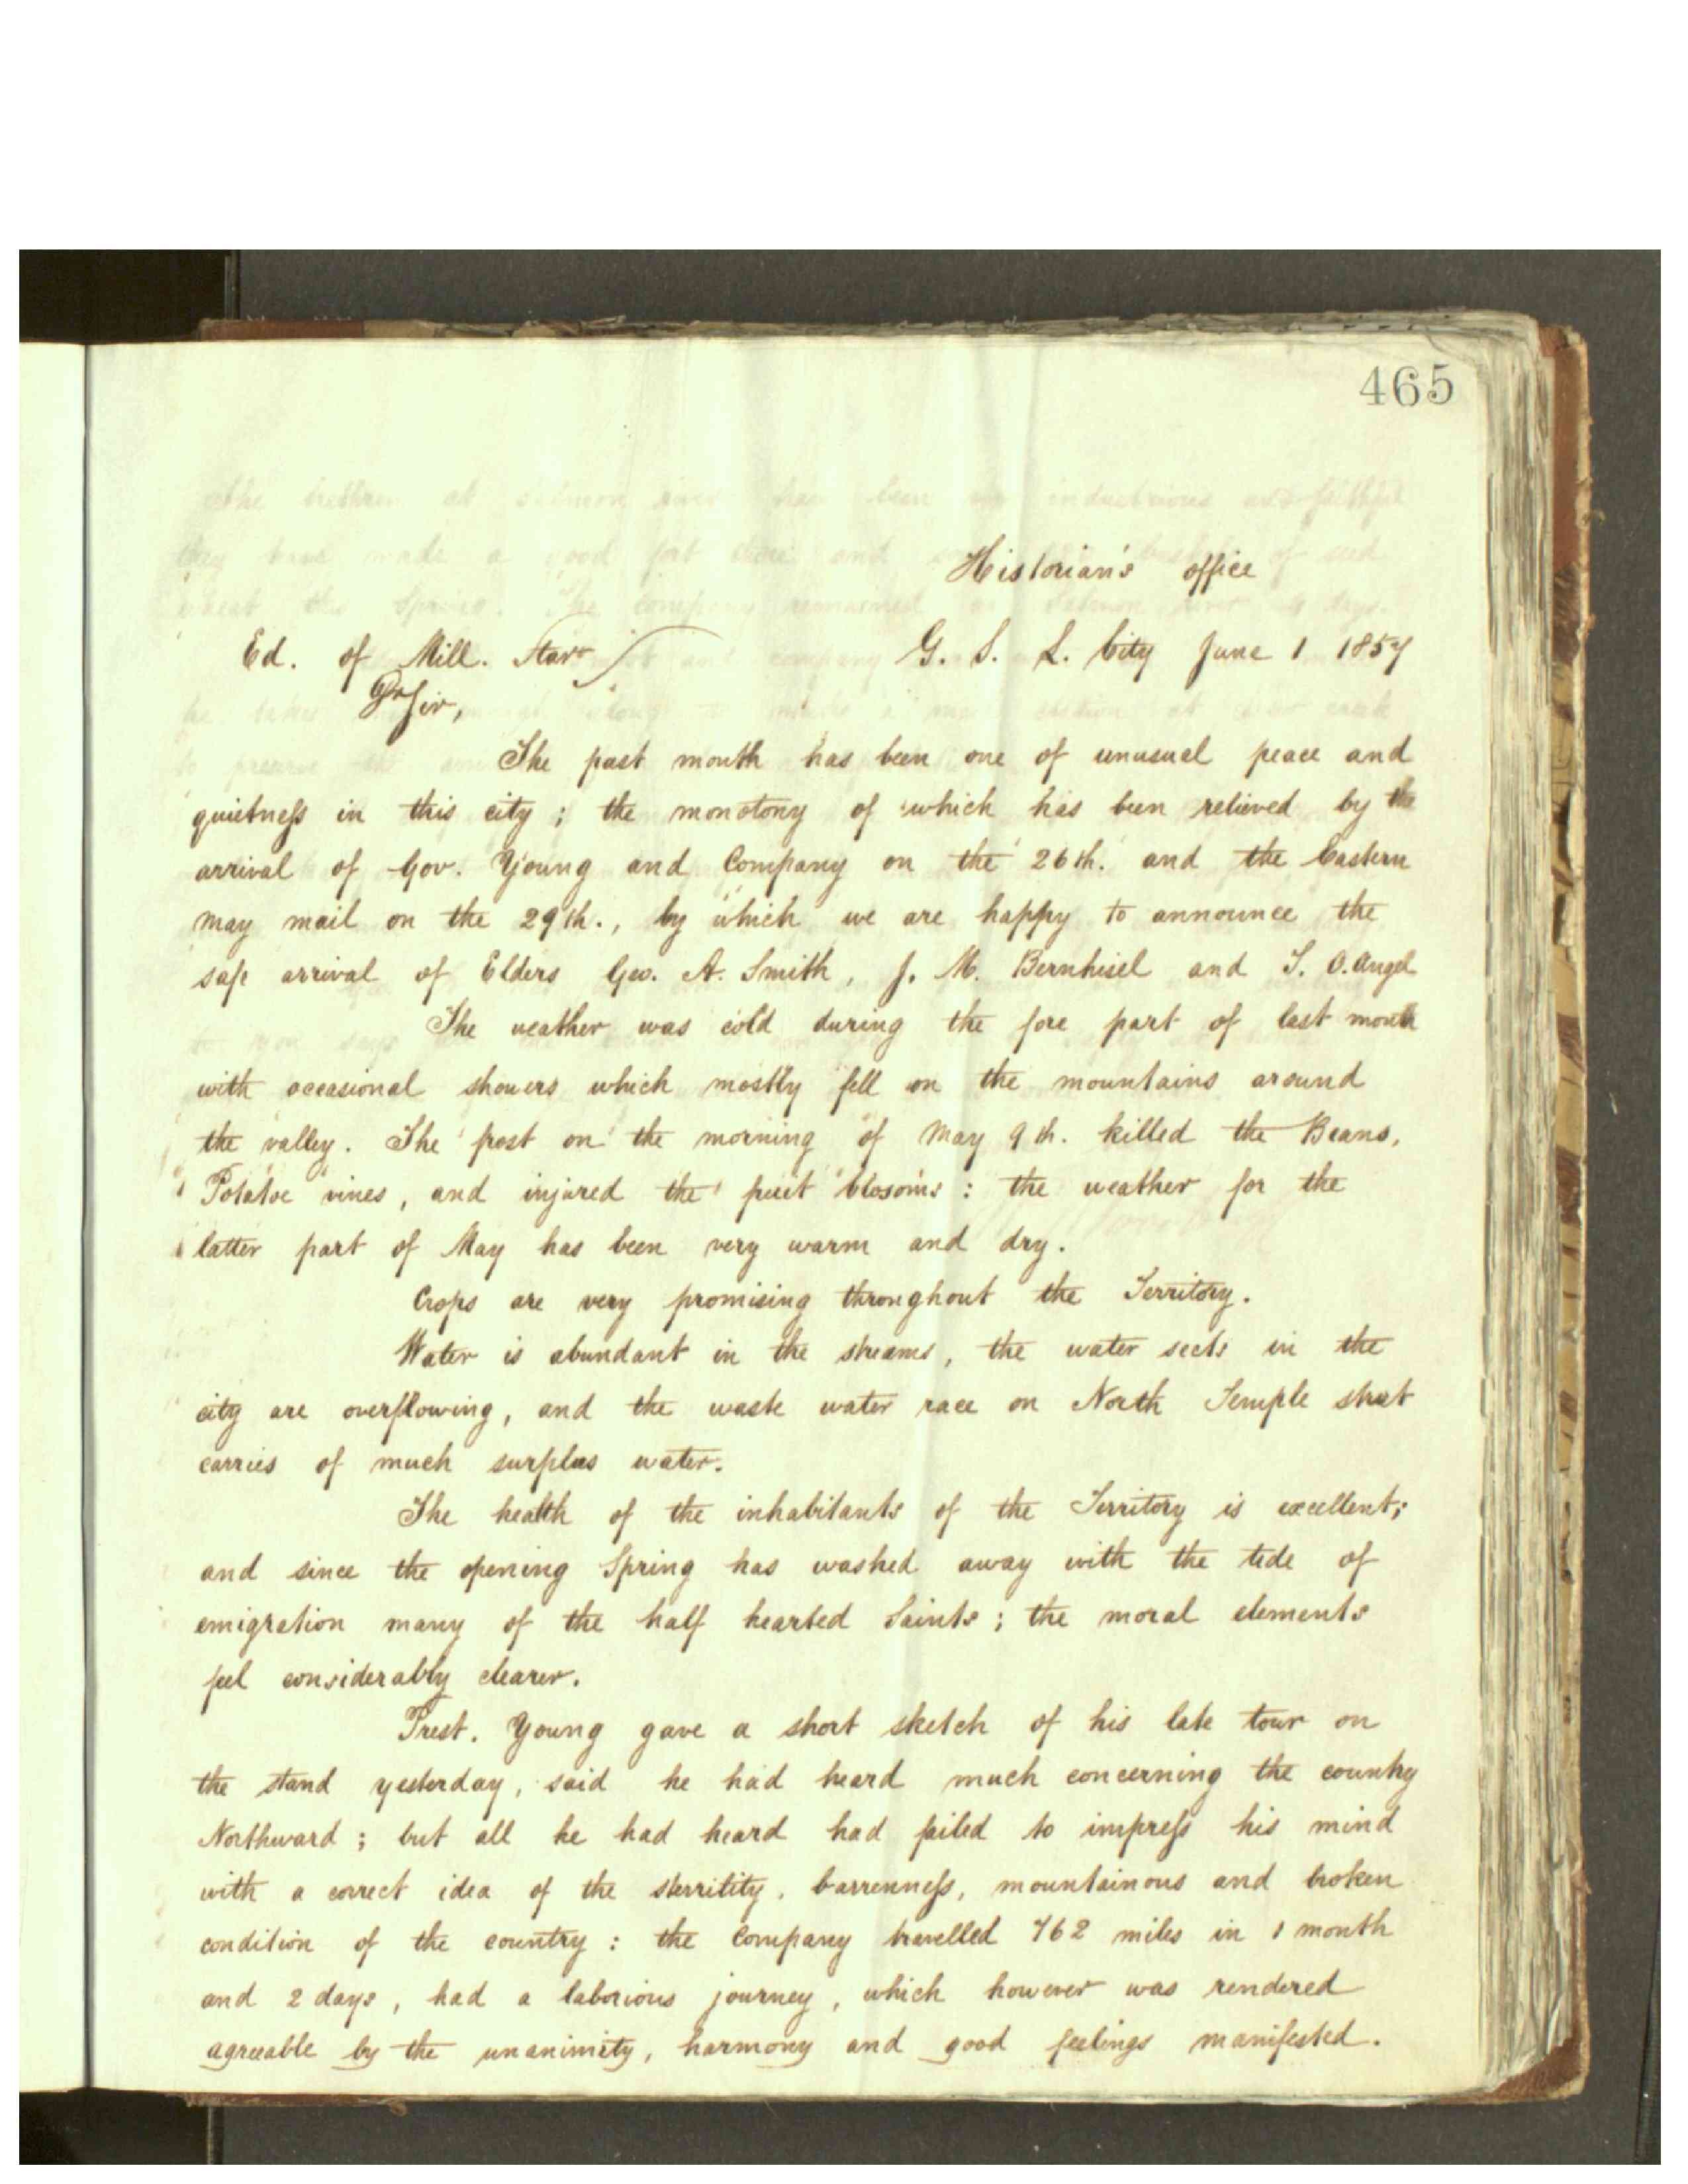 465
Historian's office
Ed. of Mill. Star G. S. L. City June 1 1857
Dr Sir,
The past month has been one of unusual peace and
quietness in this city; the monotony of which has been relieved by the
arrival of Gov. Young and Company on the 26th. and the Eastern
may mail on the 29th., by which we are happy to announce the
safe arrival of Elders Geo. A. Smith, J. M. Bernhisel and T. O. Angel
The weather was cold during the fore part of last month
with occasional showers which mostly fell on the mountains around
the valley. The frost on the morning of May 9th. killed the Beans,
Potatoe vines, and injured the fruit blosoms: the weather for the
latter part of May has been very warm and dry.
Crops are very promising throughout the Territory.
Water is abundant in the streams, the water sects in the
city are overflowing, and the waste water race on North Temple street
carries of much surplus water.
The health of the inhabitants of the Territory is excellent;
and since the opening Spring has washed away with the tide of
emigration many of the half hearted Saints; the moral elements
feel considerably clearer.
Prest. Young gave a short sketch of his late tour on
the stand yesterday, said he had heard much concerning the country
Northward; but all he had heard had failed to impress his mind
with a correct idea of the sterritity, barrenness, mountainous and broken
condition of the country: the Company travelled 762 miles in 1 month
and 2 days, had a laborious journey, which however was rendered
agreeable by the unanimity, harmony and good feelings manifested.